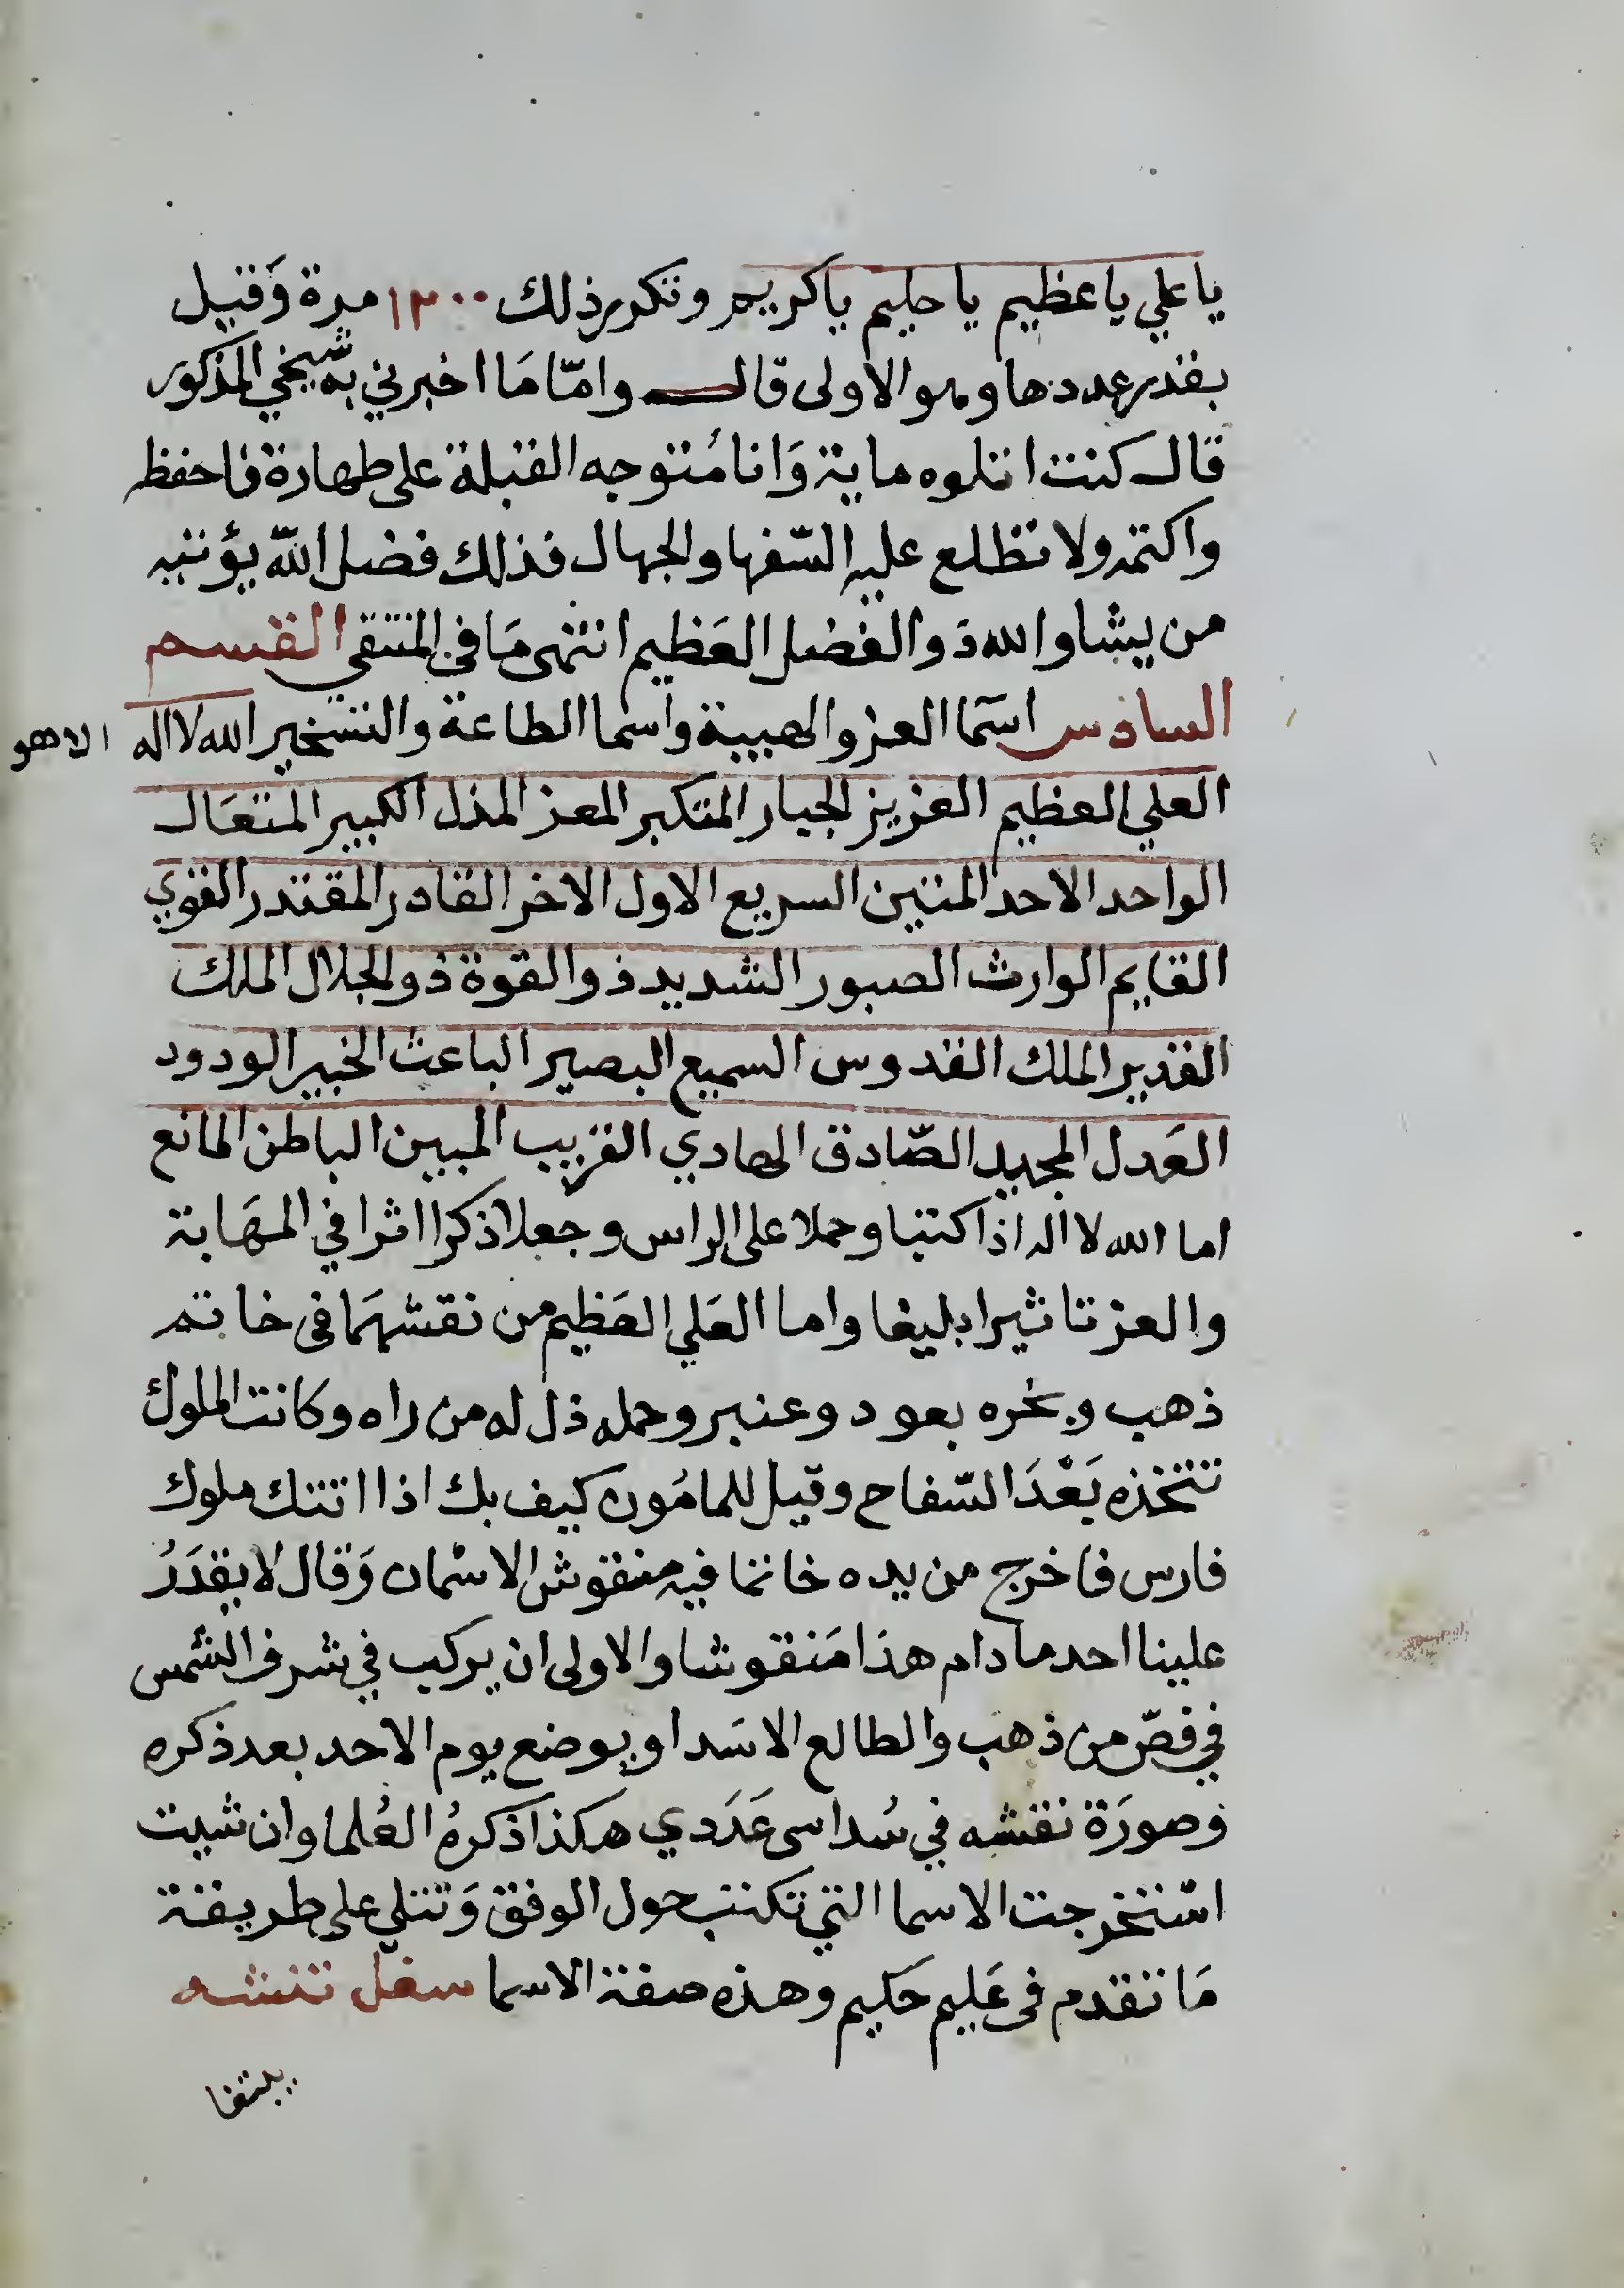 يا علي يا عظيم يا حليم يا كريم وتكرر ذلك ١٢٠٠ مرة وَقيل
بقدر عددها وهو الاولى قال وامّا مَا اخبرني به شيخي المذكور
قال كنت اتلوه ماية وَانا مُتوجه القبلة على طهارة فاحفظه
واكتمه ولا تظلع عليه السّفها والجهال فذلك فضل الله يؤتيه
من يشا والله ذو الفضل العَظيم انتهى مَا في المنتقى القسم
السادس اسمَا العز والهيبة واسما الطاعة والتسخير الله لا اله الا هو
العلي العظيم العزيز الجبار المتكبر المعز المذل الكبير المتعَال
الواحد الاحد المتين السريع الاول الاخر القادر المقتدر القوي
القايم الوارث الصبور الشديد ذو القوة ذو الجلال الملك
القدير الملك القدوس السميع البصير الباعث الخبير الودود
العَدل المجيد الصّادق الهادي القريب المبين الباطن المانع
اما الله لا اله اذا كتبا وحملا على الراس وجعلا ذكرا اثرا في المهَابة
والعز تاثيرا بليغا واما العَلي العَظيم من نقشهمَا فى خاتم
ذهب وبخره بعود وعنبر وحمله ذل له من راه وكانت الملوك
تتخذه بَعْدَ السّفاح وقيل للمامُون كيف بك اذا اتتك ملوك
فارس فاخرج من يده خاتما فيه منقوش الاسْمان وَقال لا يقدَرُ
علينا احد ما دام هذا مَنقوشا والاولى ان يركب في شرف الشمس
في فصّ من ذهب والطالع الاسَد او يوضع يوم الاحد بعد ذكره
وصورَة نقشه في سُداسى عَدَدي هكذا ذكرهُ العُلما وان شيت
استخرجت الاسما التي تكتب حول الوفق وَتتلى على طريقة
مَا تقدم فى عَليم حَكيم وهذه صفة الاسما